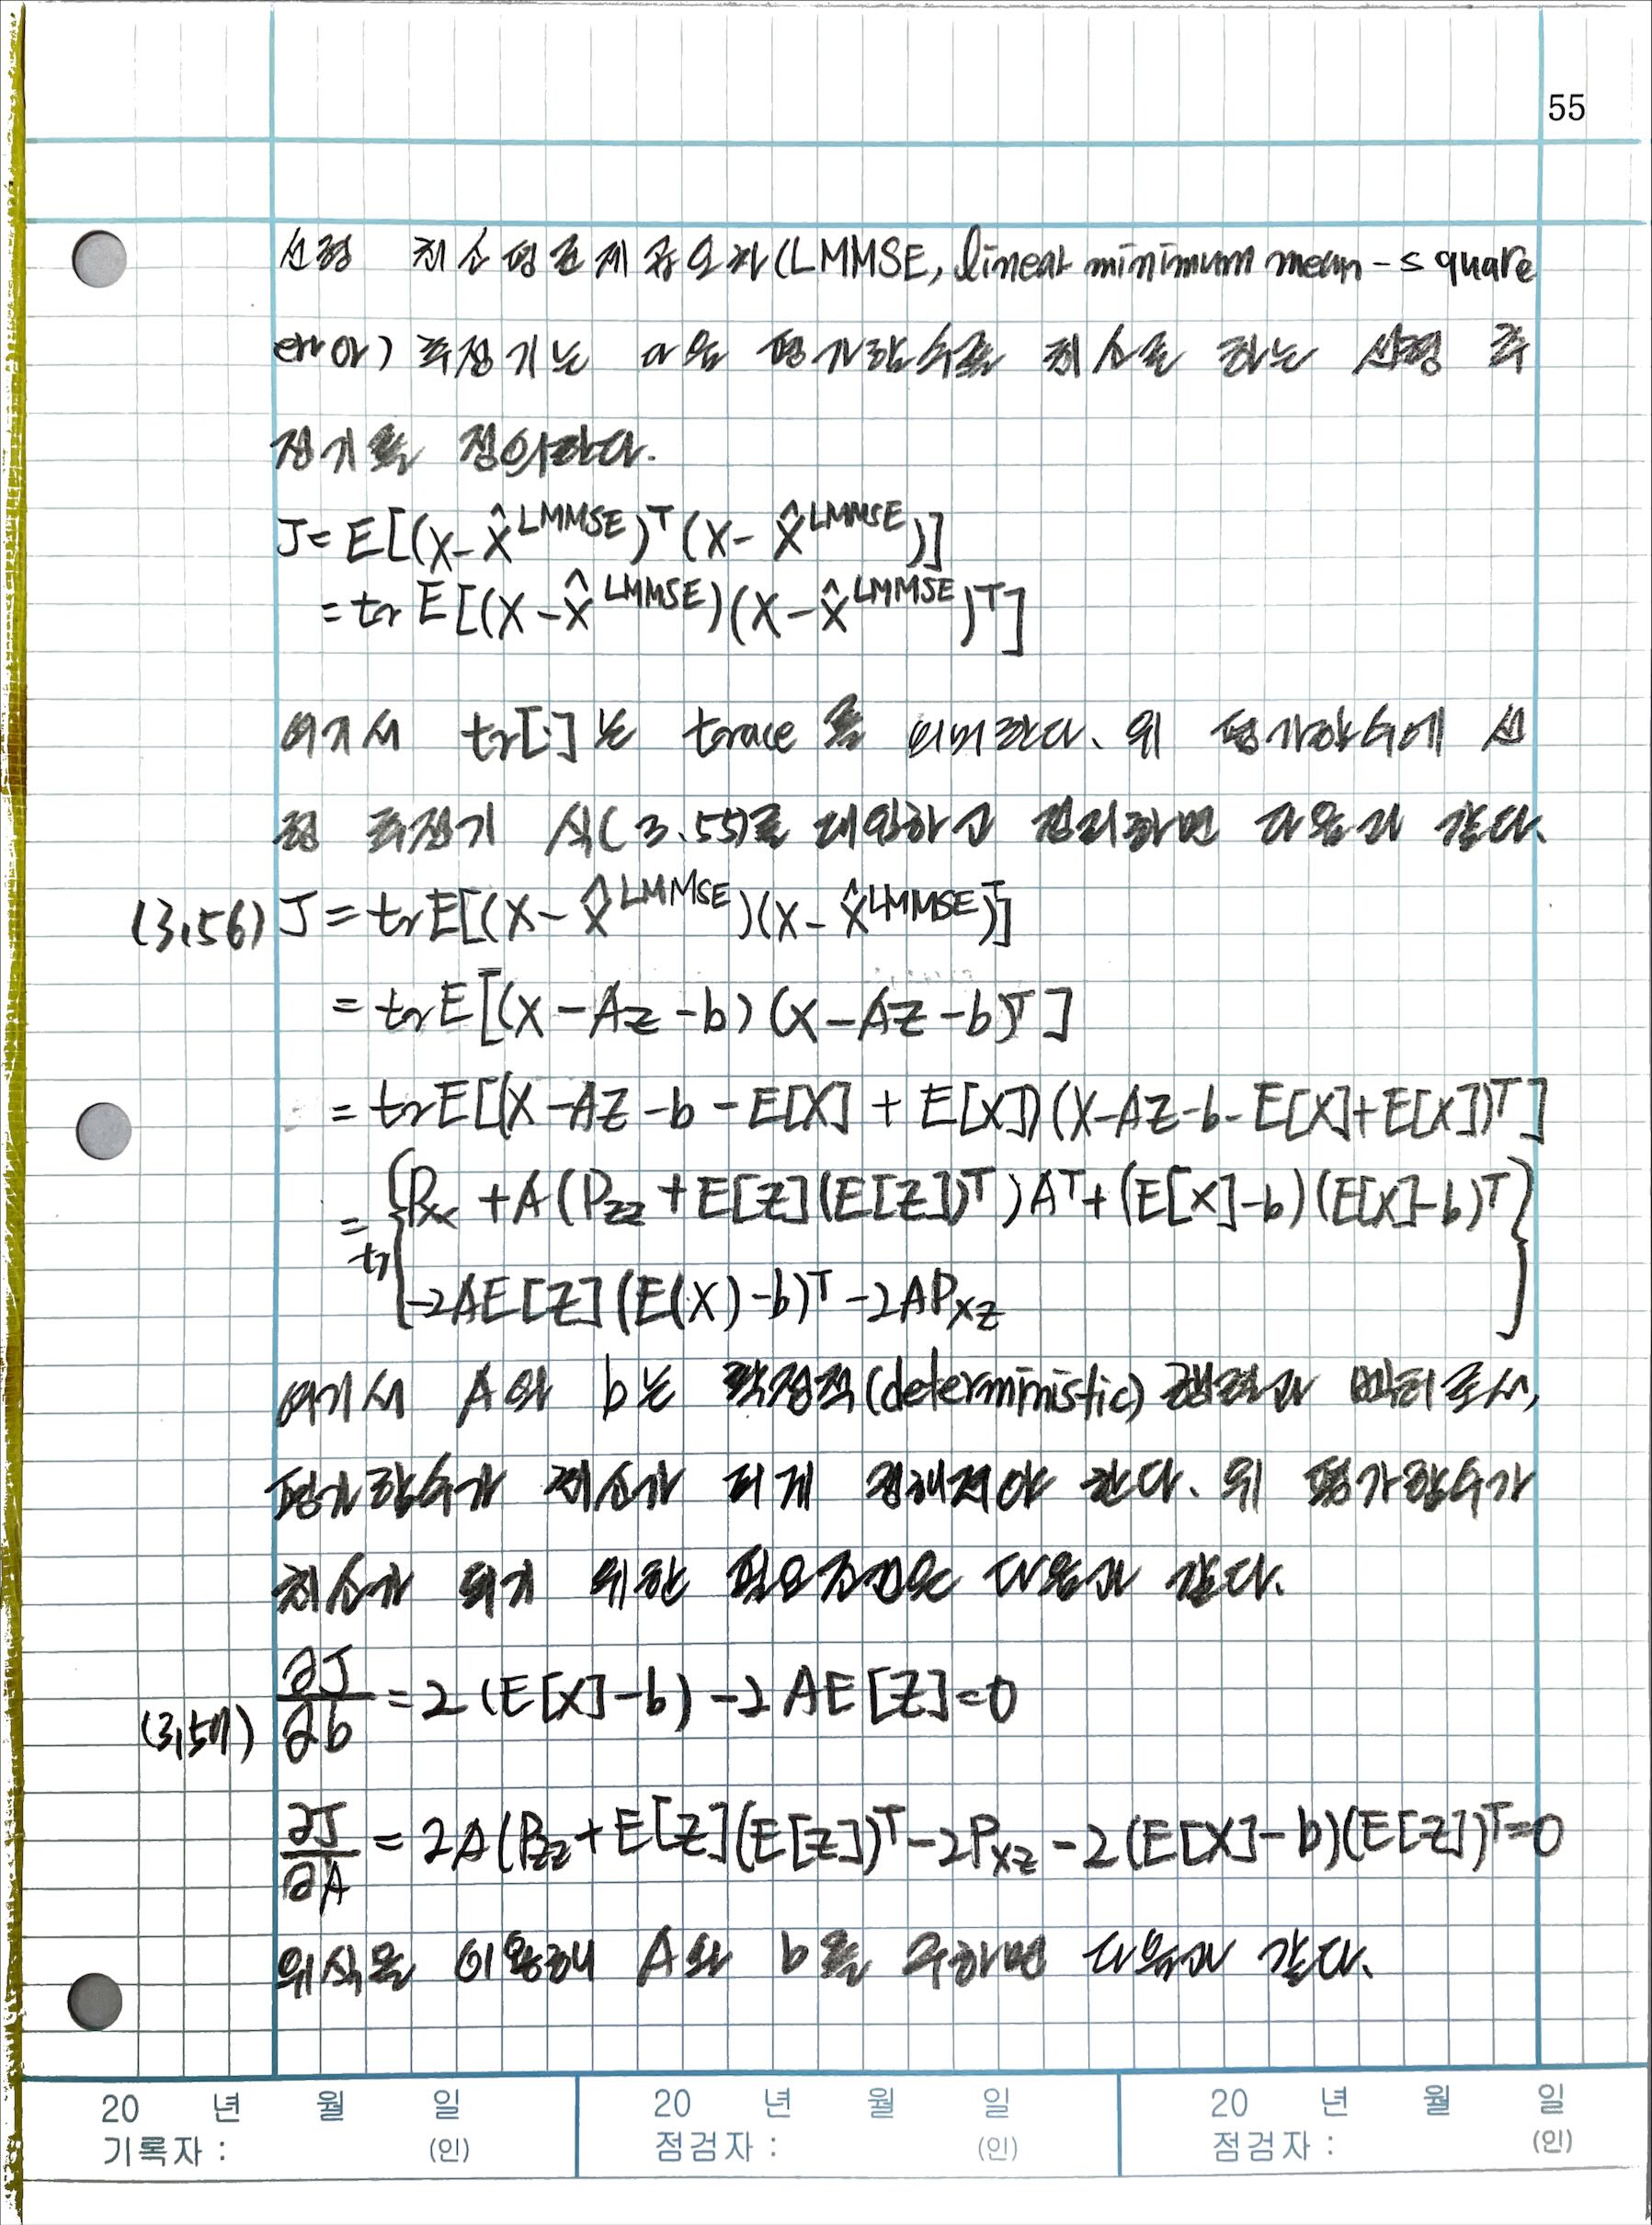 55
선형 최소평균제곱오차(LMMSE, linear minimum mean-square
error) 추정기는 다음 평가함수를 최소로 하는 선형 추
정기로 정의한다.
J = E[(X - X̂^LMMSE)^T (X - X̂^LMMSE)]
= tr E[(X - X̂^LMMSE)(X - X̂^LMMSE)^T]
여기서 tr[·]는 trace를 의미한다. 위 평가함수에 선
형 추정기 식(3.55)를 대입하고 정리하면 다음과 같다.
(3.56) J = tr E[(X - X̂^LMMSE)(X - X̂^LMMSE)^T]
= tr E[(X - AZ - b)(X - AZ - b)^T]
= tr E[(X - AZ - b - E[X] + E[X])(X - AZ - b - E[X] + E[X])^T]
= tr{P_xx + A(P_zz + E[Z](E[Z])^T)A^T + (E[X] - b)(E[X] - b)^T
-2AE[Z](E(X) - b)^T - 2AP_xz}
여기서 A와 b는 확정적(deterministic) 행렬과 벡터로서,
평가함수가 최소가 되게 정해져야 한다. 위 평가함수가
최소가 되기 위한 필요조건은 다음과 같다.
(3.57) ∂J/∂b = 2(E[X] - b) - 2AE[Z] = 0
∂J/∂A = 2A(P_zz + E[Z](E[Z])^T - 2P_xz - 2(E[X] - b)(E[Z])^T = 0
위식을 이용해 A와 b를 구하면 다음과 같다.
20 년 월 일 20 년 월 일 20 년 월 일
기록자 : (인) 점검자 : (인) 점검자 : (인)